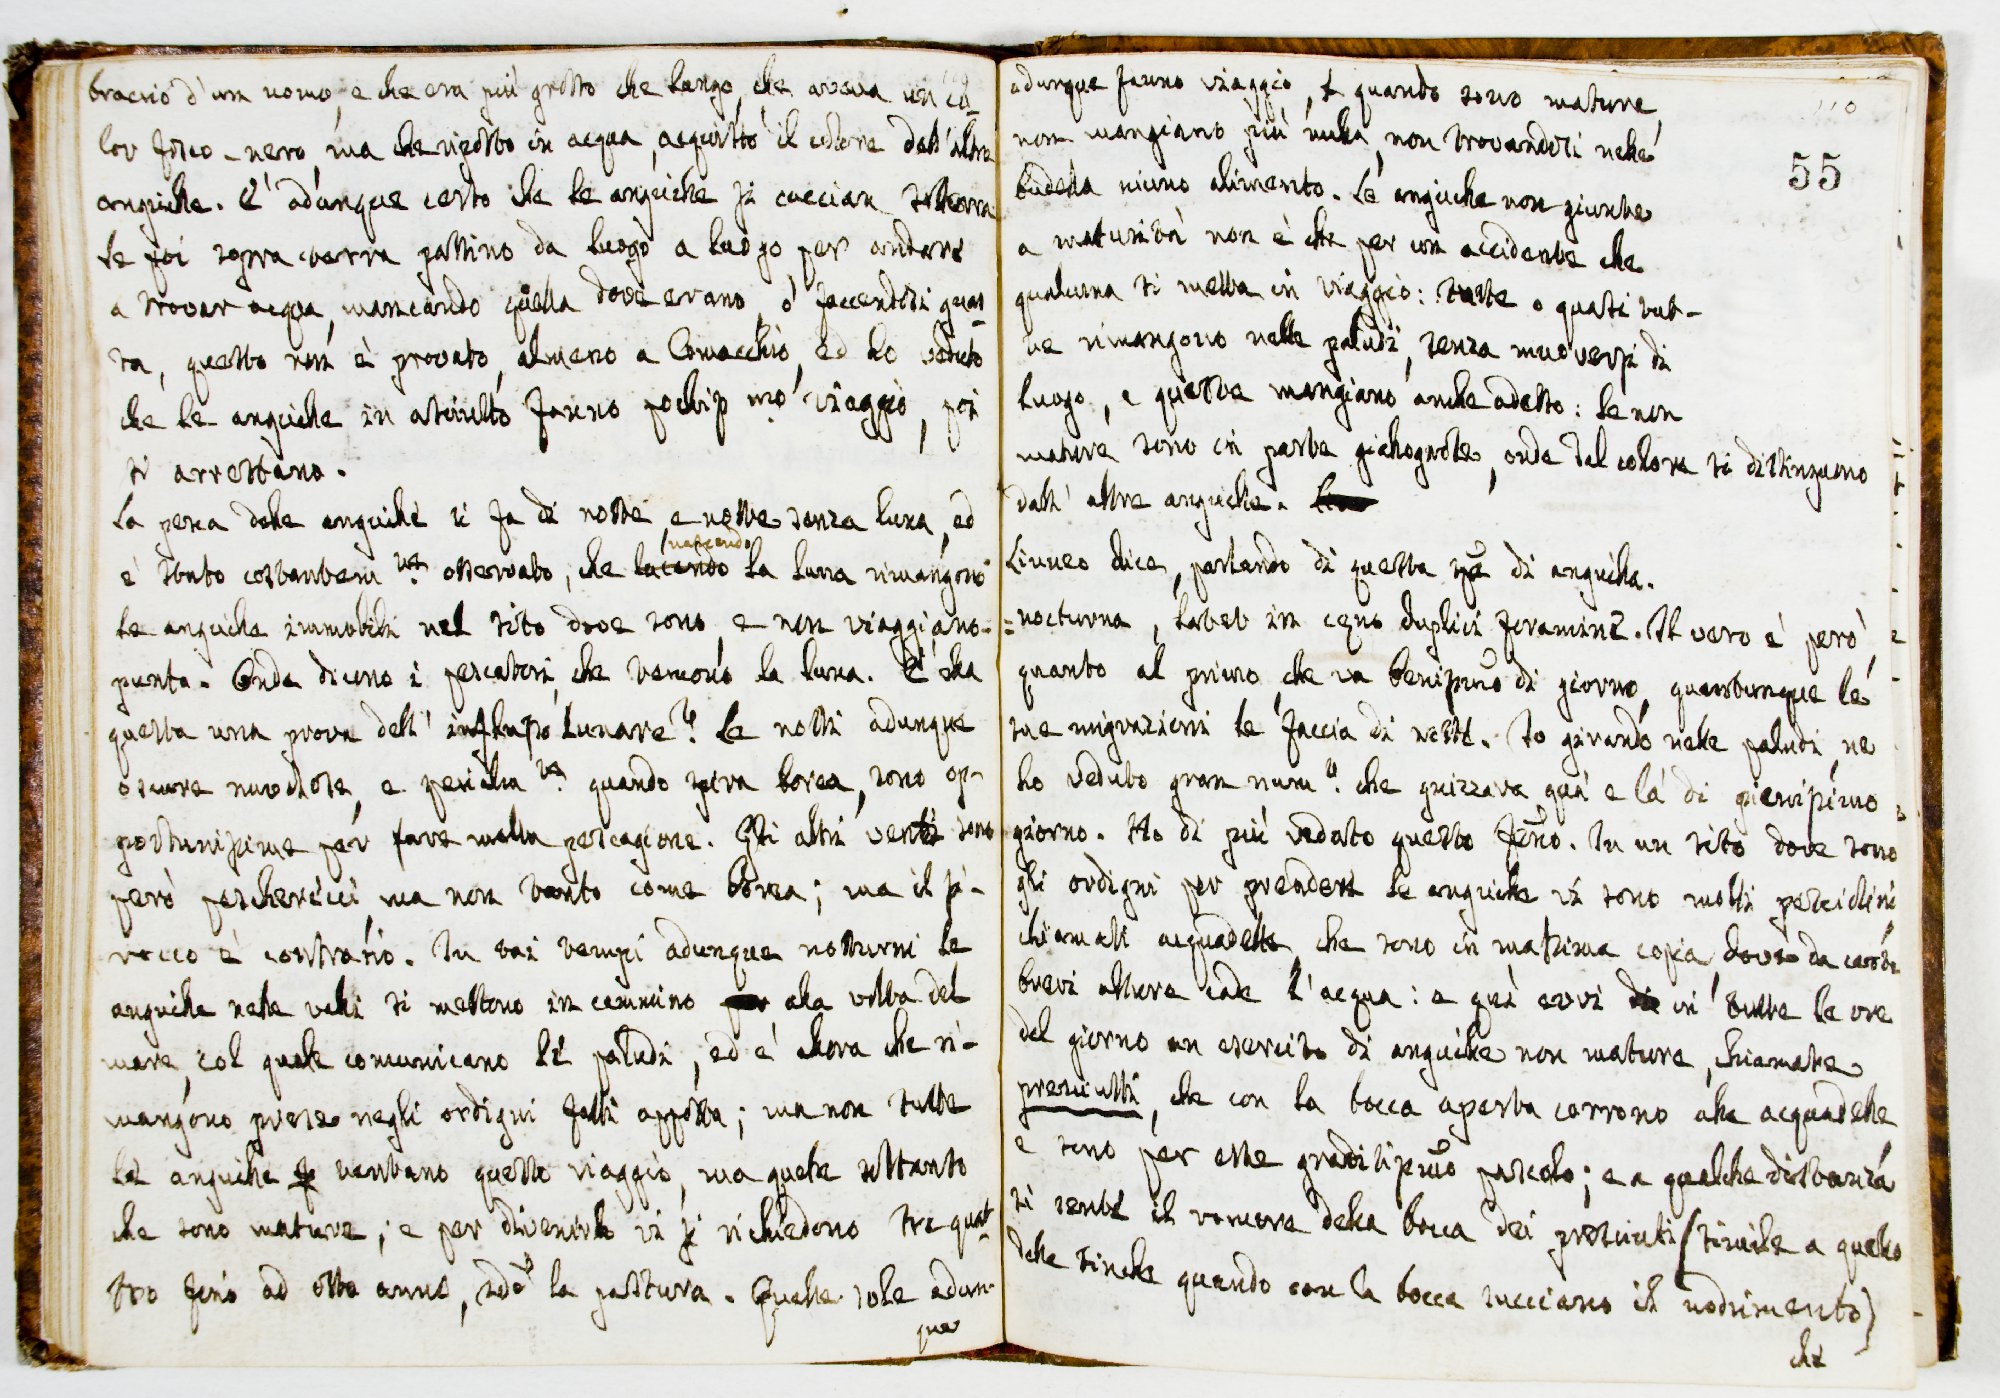 braccio d'un uomo, e che era più grosso che lungo, che aveva un co=
lor fosco-nero, ma che riposto in acqua, acquistò il colore dell'altre
anguille. È adunque certo che le anguille si caccian sotterra
Se poi sopra terra passino da luogo a luogo per andare
a trovar acqua, mancando quella dove erano, o facendosi guas=
ta, questo non è provato, almeno a Comacchio, ed ho veduto
che le anguille in asciutto fanno pochiss.mo viaggio, poi
si arrestano.
La pesca delle anguille si fa di notte, e notte senza luna, ed
è stato costantem.te osservato, che lucendo nascendo la luna rimangono
le anguille immobili nel sito dove sono, e non viaggiano
punto. Onde dicono i pescatori, che temono la luna. È ella
questa una prova dell' influsso lunare? Le notti adunque
oscure nuvolose, e specialm.te quando spira borea, sono op-
portunissime per fare molta pescagione. Gli altri venti sono
però pescherecci, ma non tanto come borea; ma il si-
rocco è contrario. In tai tempi adunque notturni le
anguille nelle valli si mettono in cammino alla volta del
mare, col quale comunicano le paludi, ed è allora che ri-
mangono prese negli ordigni fatti apposta; ma non tutte
le anguille tentano questo viaggio, ma quelle soltanto
che sono mature; e per divenirlo vi si richiedono tre quat=
tro fino ad otto anni, sec.do la pastura. Quelle sole adun-
que
110
55
adunque fanno viaggio, e quando sono mature
non mangiano più nulla, non trovandosi nelle
budella niuno alimento. Le anguille non giunte
a maturità non è che per un accidente che
qualcuna si metta in viaggio: tutte o quasi tut-
te rimangono nelle paludi, senza muoversi di
luogo, e queste mangiano anche adesso: le non
mature sono in parte giallognole, onde dal colore si distinguono
dall' altre anguille.
Linneo dice, parlando di questa spe di anguilla.
=nocturna, habet in cœno duplici foramine. Il vero è però,
quanto al primo, che va benissimo di giorno, quantunque le
sue migrazioni le faccia di notte. Io girando nelle paludi, ne
ho veduto gran num.o che guizzava quà e là di pienissimo
giorno. Ho di più veduto questo feno. In un sito dove sono
gli ordigni per prendere le anguille vi sono molti pesciolini
chiamati acquadelle, che sono in massima copia, dove da certe
brevi alture cade l'acqua: e quì evvi in tutte le ore
del giorno un esercito di anguille non mature, chiamate
presciutti, che con la bocca aperta corrono alle acquadelle
e sono per esse graditissimo pascolo; e a qualche distanza
si sente il romore della bocca dei presciuti (simile a quello
delle tinche quando con la bocca succiano il nodrimento)
che